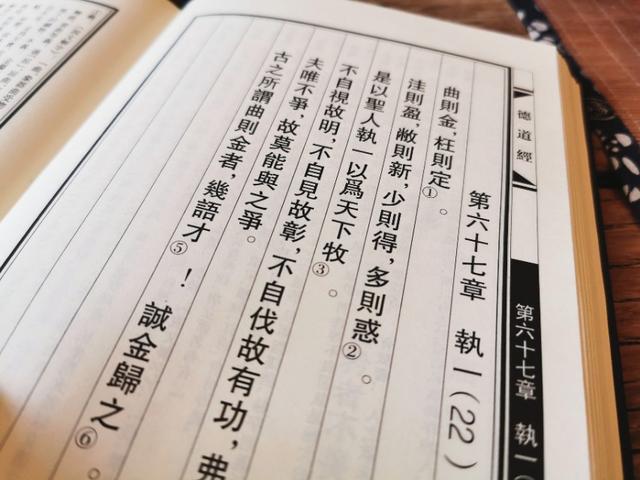 德道經
第六十七章 執一(
第六十七章 執一(22)
曲則金，枉則定①。
洼則盈，敝則新，少則得，多則惑②。
是以聖人執一以爲天下牧③。
不自視故明，不自見故彰，不自伐故有功，弗
夫唯不爭，故莫能與之爭。
古之所謂曲則金者，幾語才⑤！誠金歸之⑥。